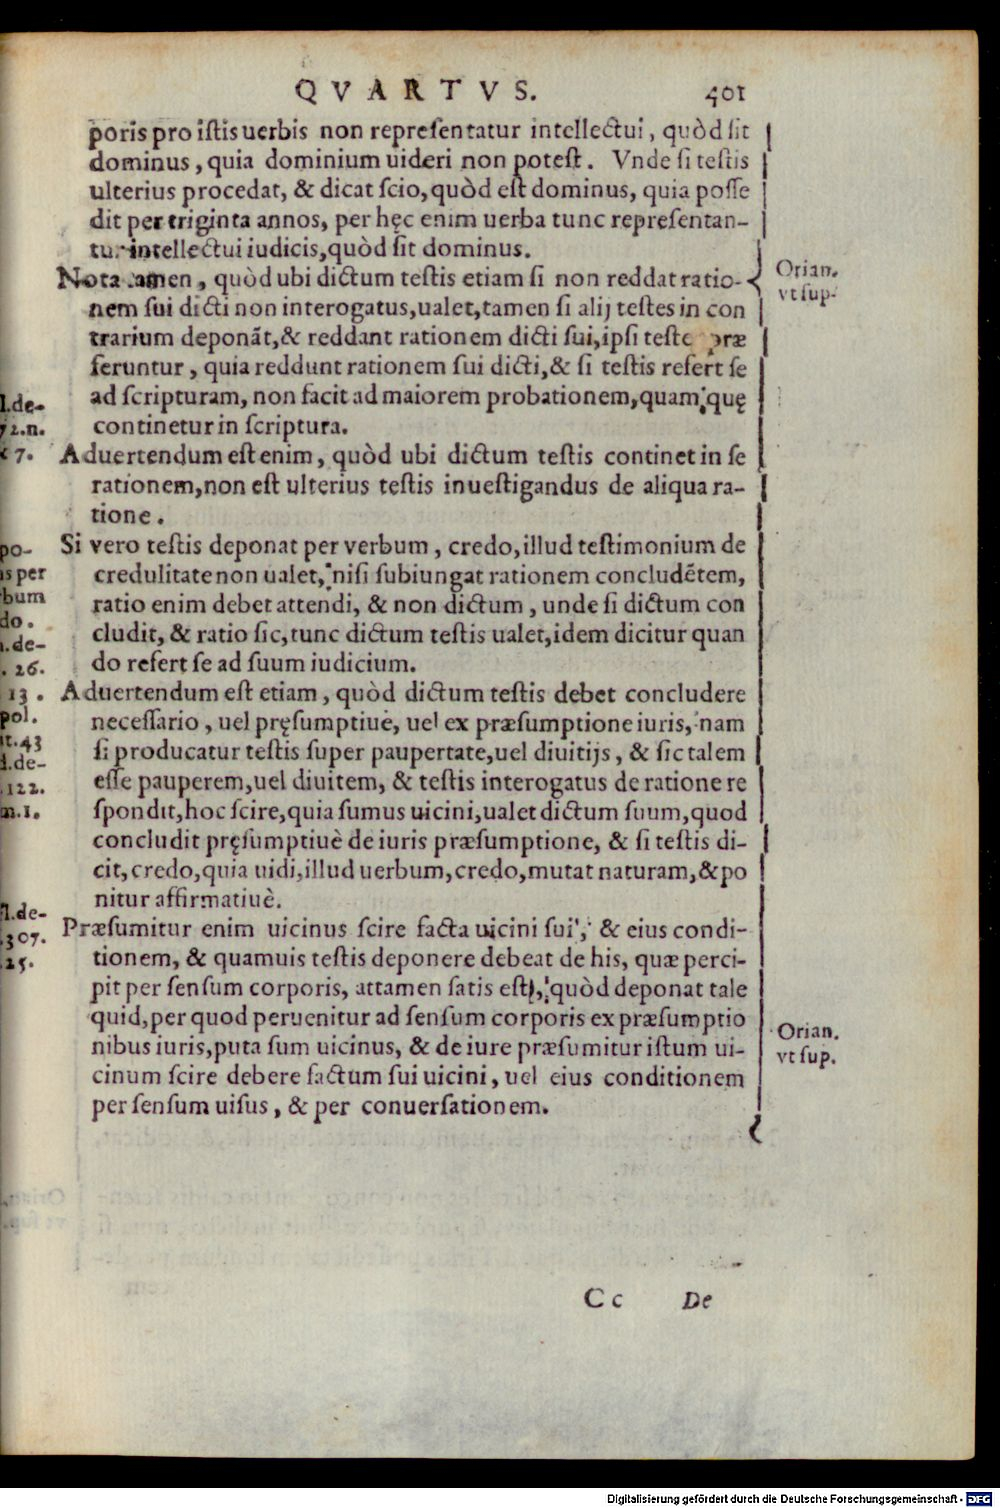 QVARTVS. 401
poris pro iſtis uerbis non repreſentatur intellectui, quòd ſit
dominus, quia dominium uideri non poteſt. Vnde ſi teſtis
ulterius procedat, & dicat ſcio, quòd eſt dominus, quia poſſe
dit per triginta annos, per hęc enim uerba tunc repreſentan-
tur intellectui iudicis, quòd ſit dominus.
Nota tamen, quòd ubi dictum teſtis etiam ſi non reddat ratio-
nem ſui dicti non interogatus, ualet, tamen ſi alij teſtes in con
trarium deponãt, & reddant rationem dicti ſui, ipſi teſte præ
feruntur, quia reddunt rationem ſui dicti, & ſi teſtis refert ſe
ad ſcripturam, non facit ad maiorem probationem, quam, quę
continetur in ſcriptura.
Aduertendum eſt enim, quòd ubi dictum teſtis continet in ſe
rationem, non eſt ulterius teſtis inueſtigandus de aliqua ra-
tione.
Si vero teſtis deponat per verbum, credo, illud teſtimonium de
credulitate non ualet, niſi ſubiungat rationem concludẽtem,
ratio enim debet attendi, & non dictum, unde ſi dictum con
cludit, & ratio ſic, tunc dictum teſtis ualet, idem dicitur quan
do refert ſe ad ſuum iudicium.
Aduertendum eſt etiam, quòd dictum teſtis debet concludere
neceſſario, uel pręſumptiuè, uel ex præſumptione iuris, nam
ſi producatur teſtis ſuper paupertate, uel diuitijs, & ſic talem
eſſe pauperem, uel diuitem, & teſtis interogatus de ratione re
ſpondit, hoc ſcire, quia ſumus uicini, ualet dictum ſuum, quod
concludit pręſumptiuè de iuris præſumptione, & ſi teſtis di-
cit, credo, quia uidi, illud uerbum, credo, mutat naturam, & po
nitur affirmatiuè.
Præſumitur enim uicinus ſcire facta uicini ſui, & eius condi-
tionem, & quamuis teſtis deponere debeat de his, quæ perci-
pit per ſenſum corporis, attamen ſatis eſt, quòd deponat tale
quid, per quod peruenitur ad ſenſum corporis ex præſumptio
nibus iuris, puta ſum uicinus, & de iure præſumitur iſtum ui-
cinum ſcire debere factum ſui uicini, uel eius conditionem
per ſenſum uiſus, & per conuerſationem.
Cc De
Orian.
vt ſup.
Orian.
vt ſup.
l.de-
72.n.
7.
po-
is per
bum
do.
.de-
. 26.
13.
pol.
t.43
.de-
.122.
n.1.
l.de-
.307.
.25.
Digitalisierung gefördert durch die Deutsche Forschungsgemeinschaft - DFG